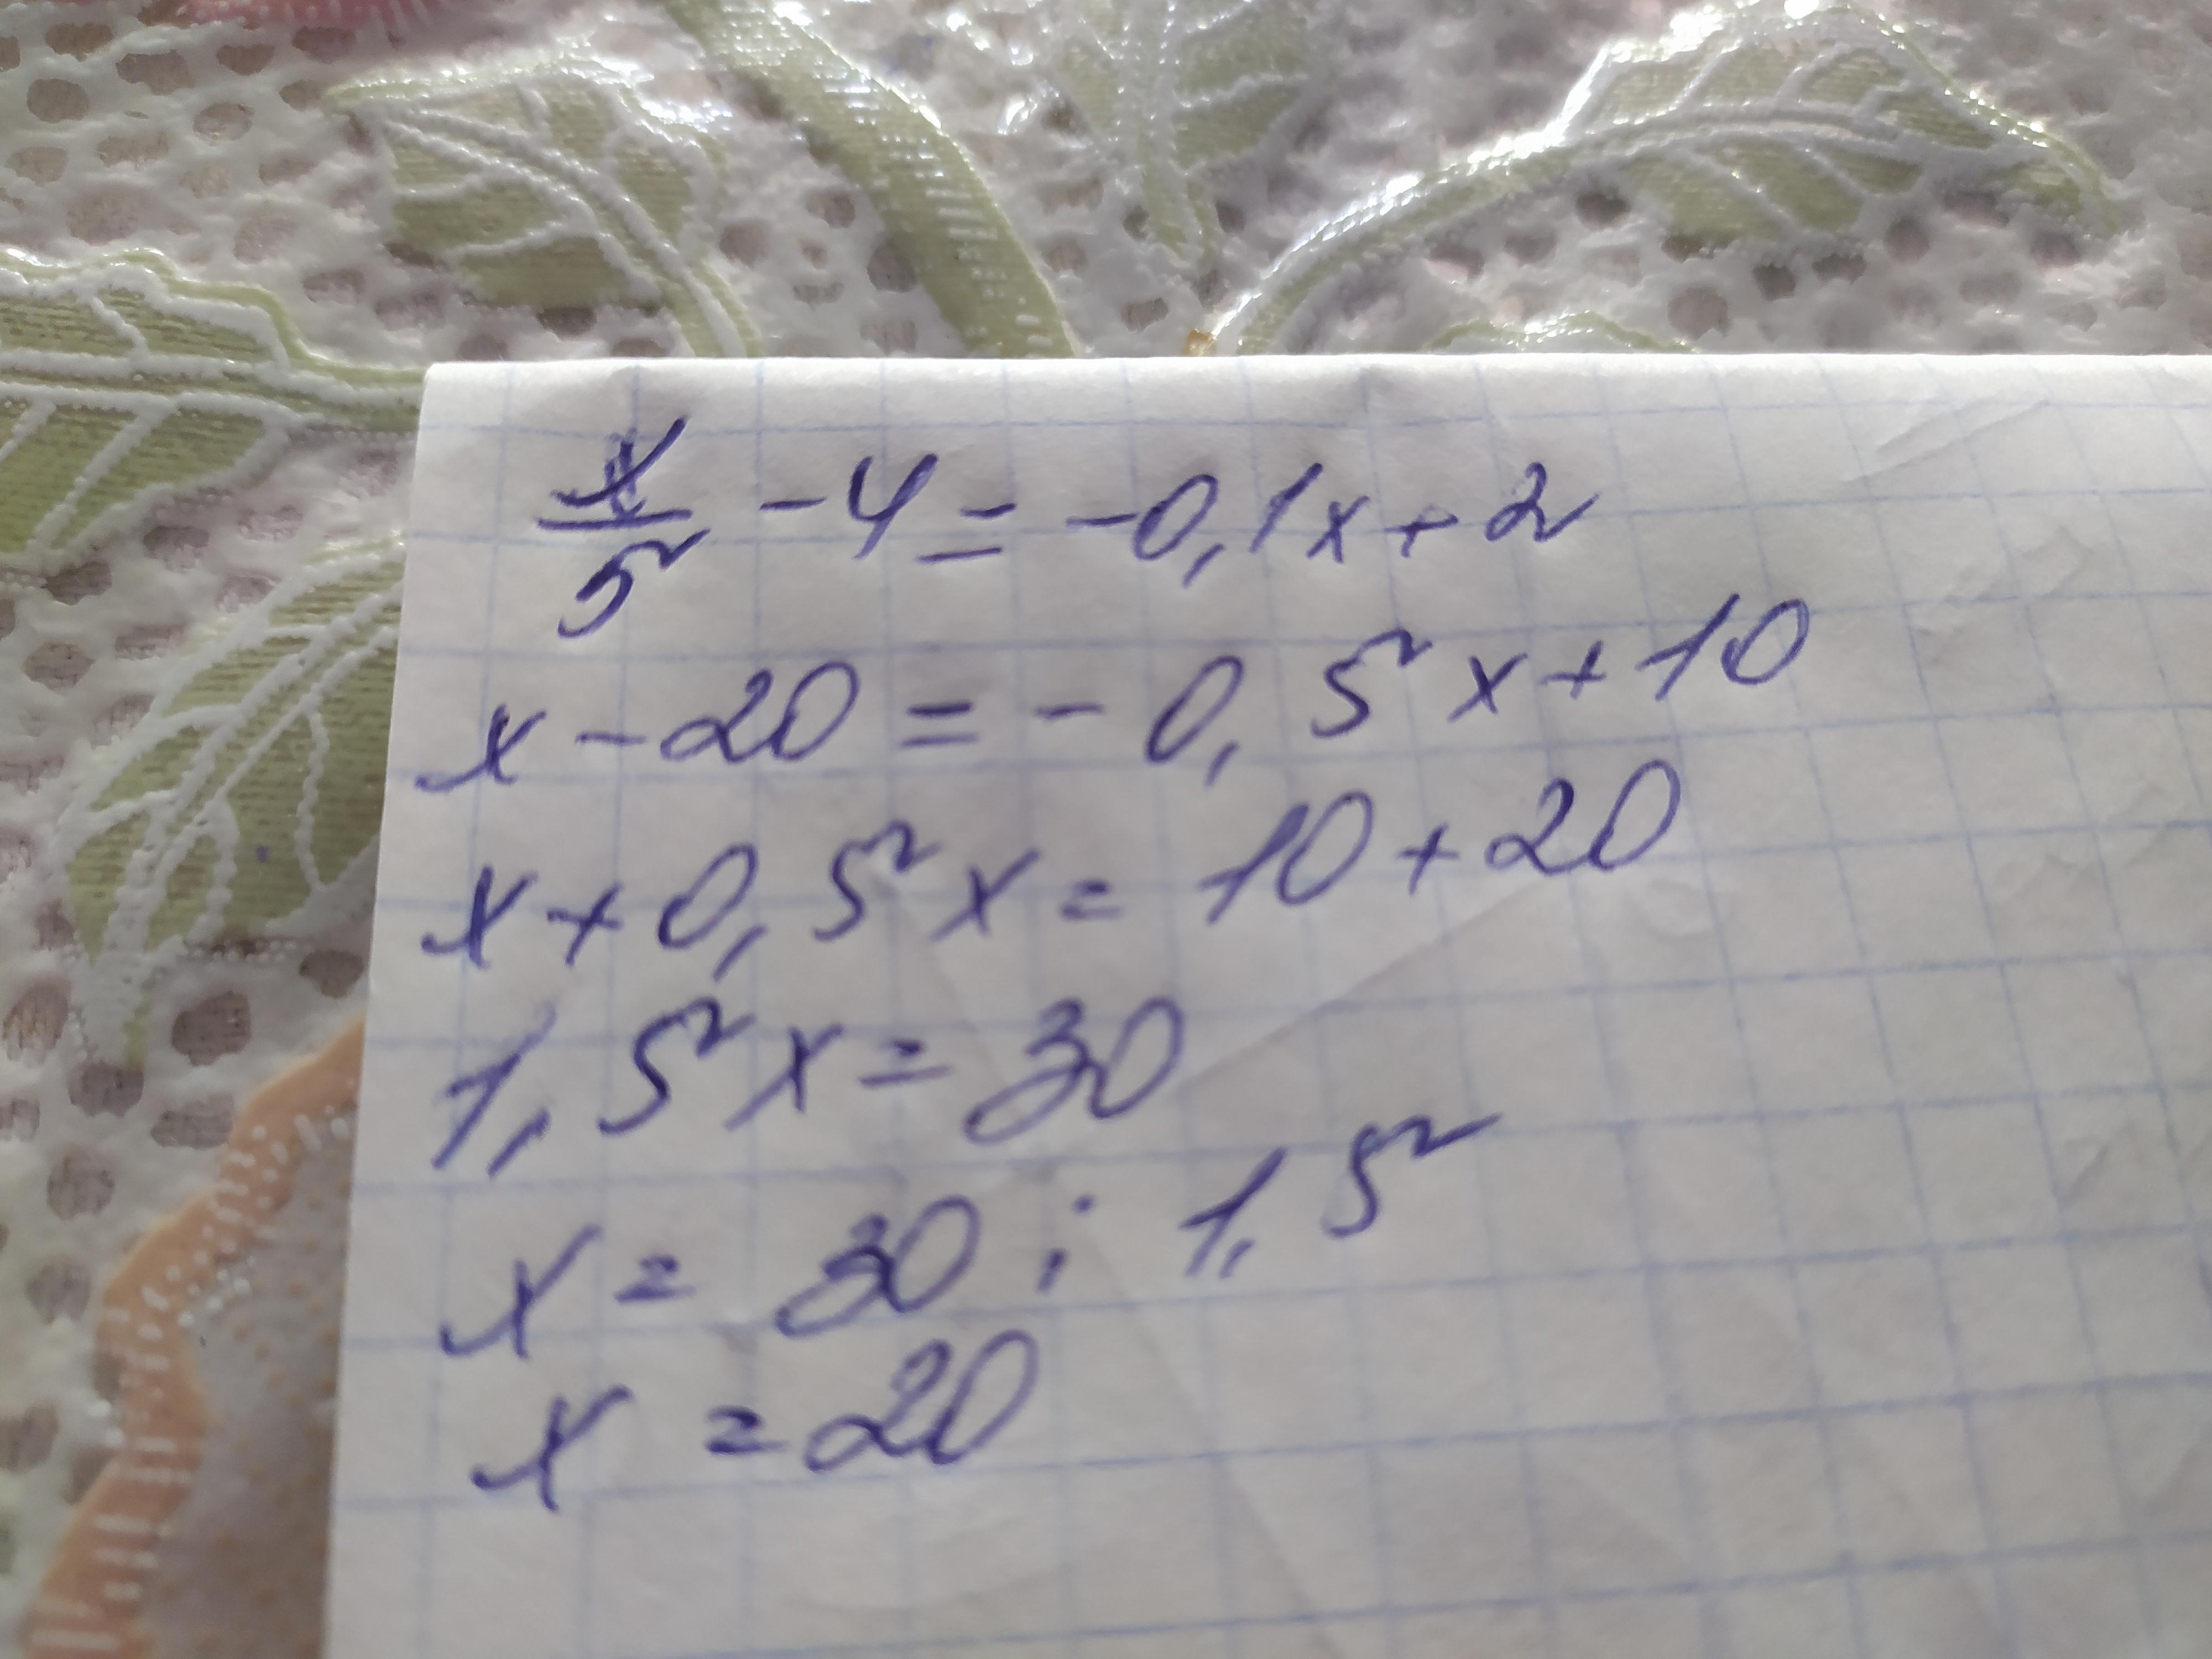 x/5 - 4 = -0,1x + 2
x - 20 = - 0,5x + 10
x + 0,5x = 10 + 20
1,5x = 30
x = 30 : 1,5
x = 20